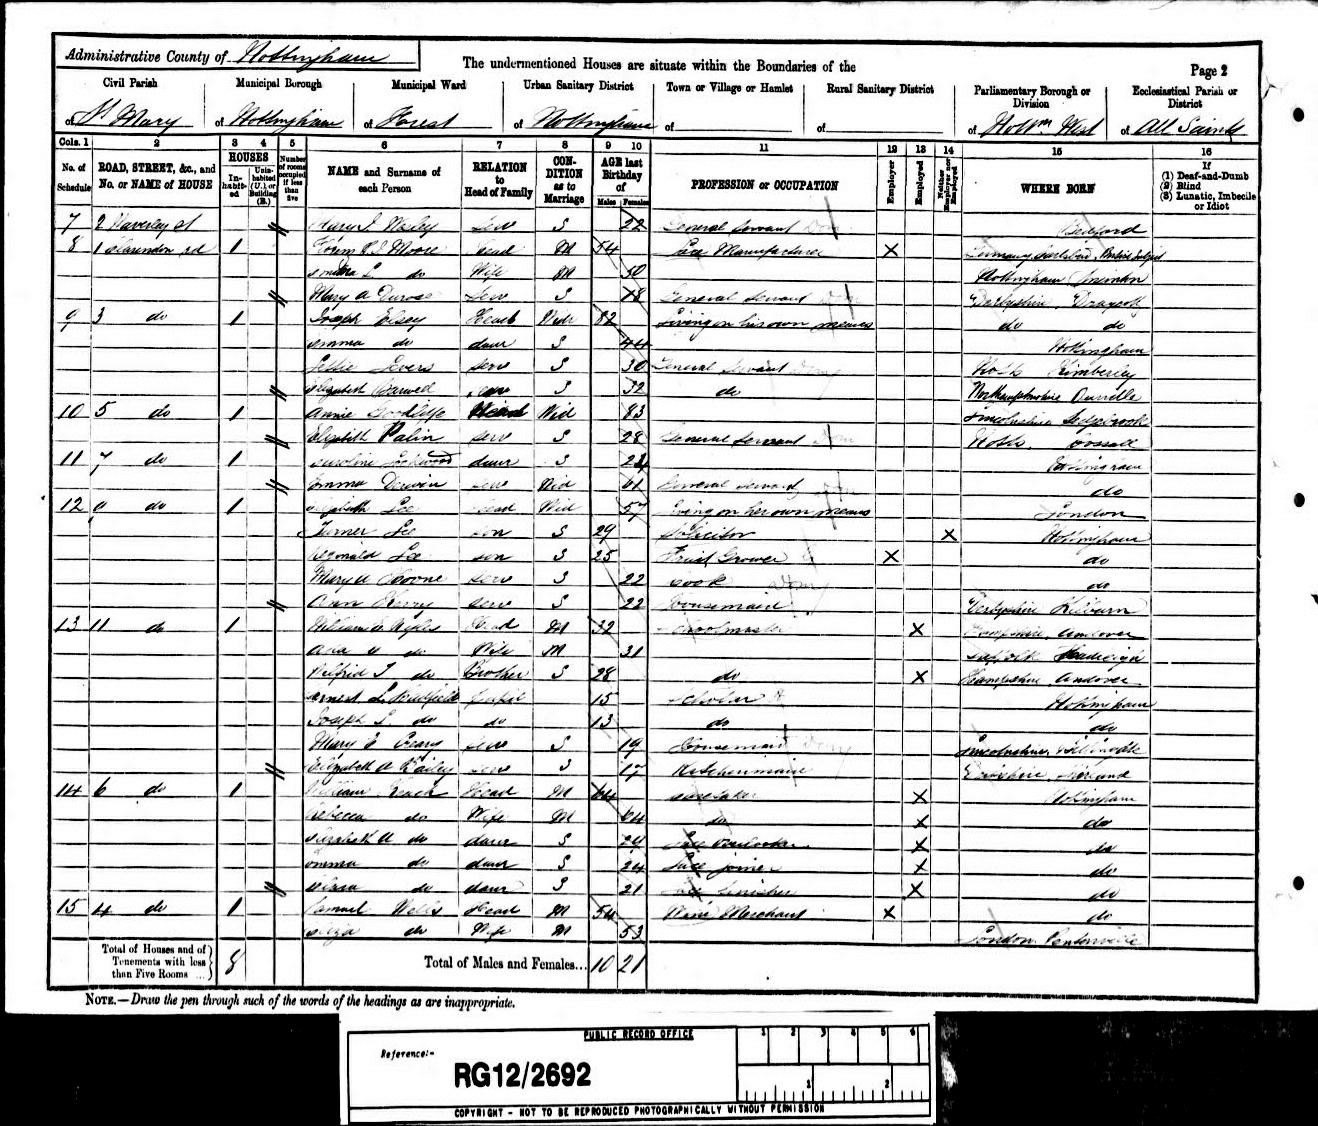 Administrative County of Nottingham
The undermentioned Houses are situate within the Boundaries of the
Page 2
Civil Parish Municipal Borough Municipal Ward Urban Sanitary District Town or Village or Hamlet Rural Sanitary District Parliamentary Borough or Division Ecclesiastical Parish or District
of St Mary of Nottingham of Forest of Nottingham of of of Nottm West of All Saints
Cols. 1 2 3 4 5 6 7 8 9 10 11 12 13 14 15 16
No. of Schedule ROAD, STREET, &c., and No. or NAME of HOUSE HOUSES Inhabited Uninhabited (U.), or Building (B.) Number of rooms occupied if less than five NAME and Surname of each Person RELATION to Head of Family CONDITION as to Marriage AGE last Birthday of Males Females PROFESSION or OCCUPATION Employer Employed Neither Employer nor Employed WHERE BORN If (1) Deaf-and-Dumb (2) Blind (3) Lunatic, Imbecile or Idiot
7 2 Waverley St Mary J Serv S 22 General Servant Bedford
8 1 Clarendon rd 1 Moore Head M 54 Lace Manufacturer X Germany British Subject
L do Wife M 50 Nottingham
Mary A Durose Serv S 18 General Servant Derbyshire Draycott
9 3 do 1 Joseph Elsey Head Widr 82 Living on his own means do do
Emma do daur S 44 Nottingham
Severs Serv S 30 General Servant Notts Kimberley
Elizabeth Serv S 32 do Northamptonshire
10 5 do 1 Annie Goodliffe Head Wid 83 Lincolnshire Sedgebrook
Elizabeth Palin Serv S 28 General Servant Notts Cossall
11 7 do 1 Caroline Lockwood daur S 24 Nottingham
Emma Serv Wid 61 General Servant do
12 9 do 1 Elizabeth Lee Head Wid 57 Living on her own means London
Turner Lee son S 29 Solicitor X Nottingham
Reginald Lee son S 25 Fruit Grower X do
Mary A Serv S 22 Cook do
Ann Serv S 22 Housemaid Derbyshire Kilburn
13 11 do 1 William Wyles Head M 32 Schoolmaster X Hampshire Andover
do Wife M 31 Suffolk Hadleigh
Wilfrid J do Brother S 28 do X Hampshire Andover
Ernest Pupil 15 Scholar Nottingham
Joseph S do do 13 do do
Mary E Serv S 19 Housemaid Lincolnshire
Elizabeth A Bailey Serv S 17 Kitchenmaid
14 6 do 1 William Head M 64 Caretaker X Nottingham
Rebecca do Wife M 64 do X do
Elizabeth A do daur S 29 Lace X do
Emma do daur S 24 Lace joiner X do
do daur S 21 Lace finisher X do
15 4 do 1 Samuel Wells Head M 54 Wine Merchant X do
Eliza do Wife M 53 London Pentonville
Total of Houses and of Tenements with less than Five Rooms ... 8 Total of Males and Females... 10 21
NOTE.—Draw the pen through such of the words of the headings as are inappropriate.
PUBLIC RECORD OFFICE
1 2 3 4 5 6
Reference:-
RG12/2692
1 2
COPYRIGHT - NOT TO BE REPRODUCED PHOTOGRAPHICALLY WITHOUT PERMISSION